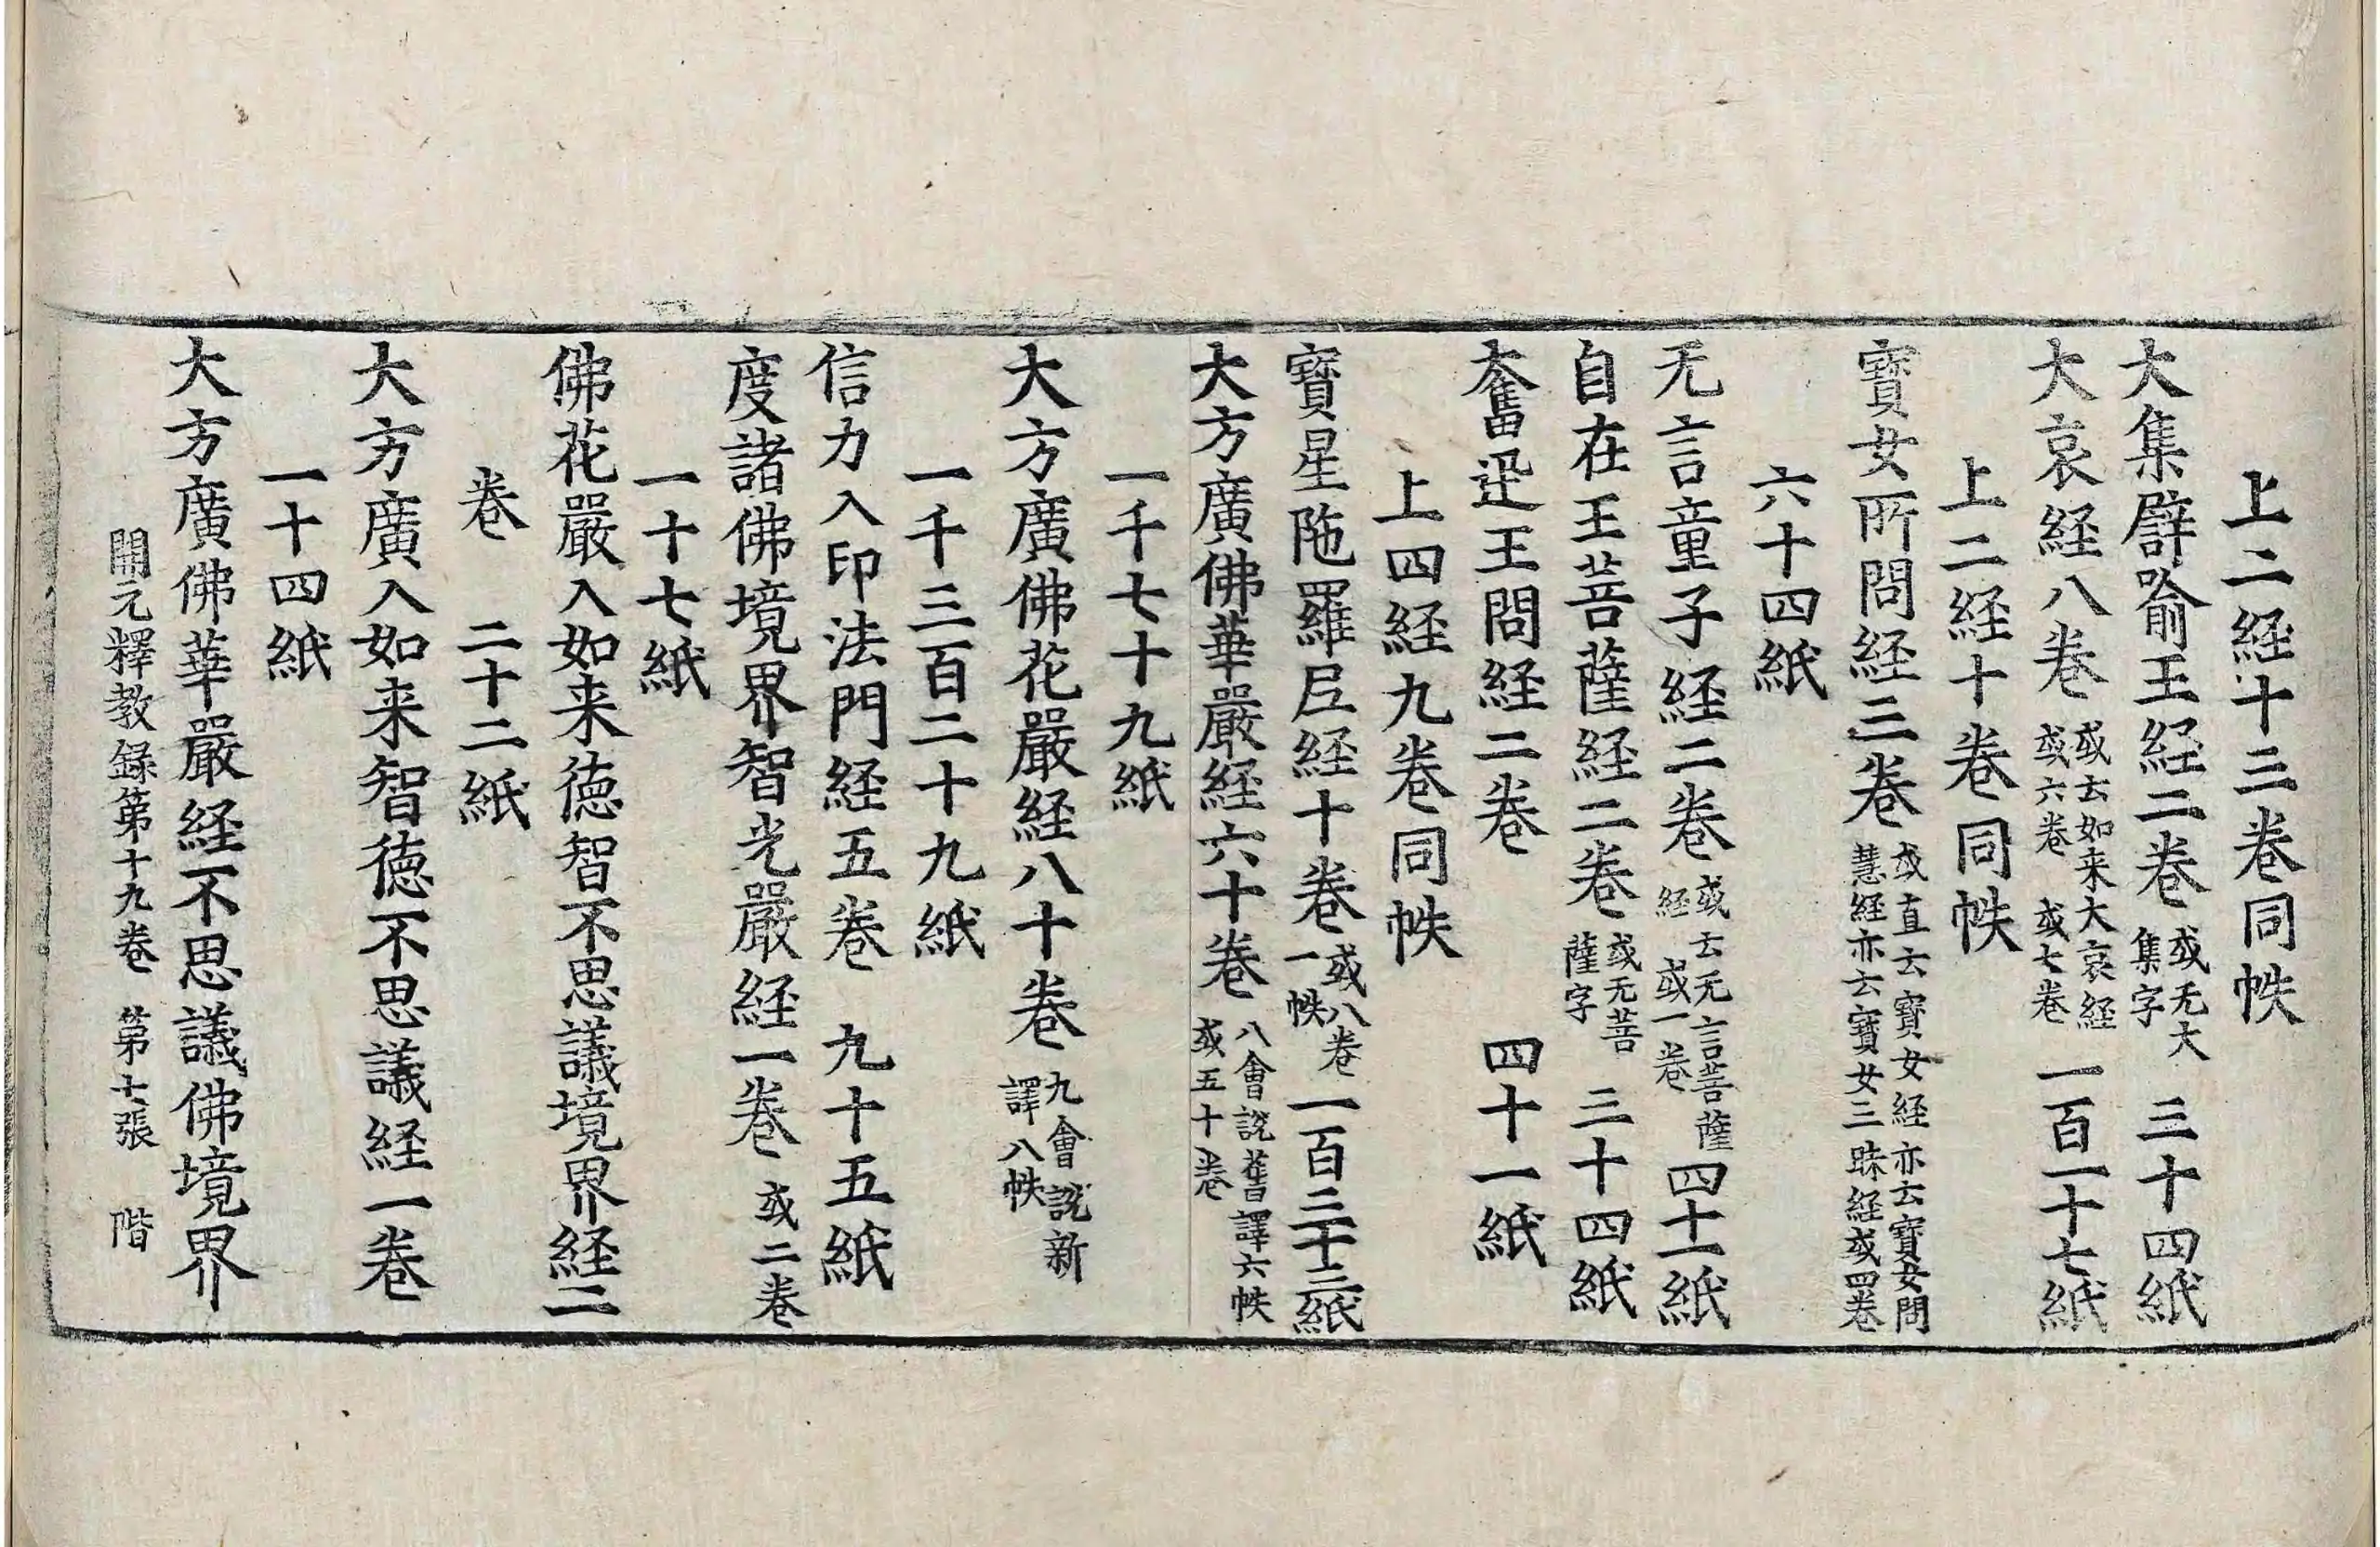 上二経十三卷同帙
大集辟喻王経二卷 或无大集字 三十四紙
大哀経八卷 或云如来大哀経或六卷 或七卷 一百一十七紙
上二経十卷同帙
寳女所問経三卷 或直云寳女経亦云寳女問慧経亦云寳女三昧経或四卷
六十四紙
无言童子経二卷 或云无言菩薩経 或一卷 四十一紙
自在王菩薩経二卷 或无菩薩字 三十四紙
奮迅王問経二卷 四十一紙
上四経九卷同帙
寳星陁羅尼経十卷 或八卷一帙 一百三十三紙
大方廣佛華嚴経六十卷 八會說舊譯六帙或五十卷
一千七十九紙
大方廣佛花嚴経八十卷 九會說新譯八帙
一千三百二十九紙
信力入印法門経五卷 九十五紙
度諸佛境界智光嚴経一卷 或二卷
一十七紙
佛花嚴入如来德智不思議境界経二
卷 二十二紙
大方廣入如来智德不思議経一卷
一十四紙
大方廣佛華嚴経不思議佛境界
開元釋教錄第十九卷 第七張 階